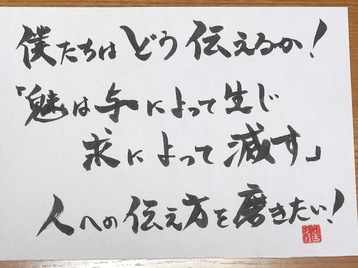 僕たちはどう伝えるか!
「魅は与によって生じ
求によって滅す」
人への伝え方を磨きたい!